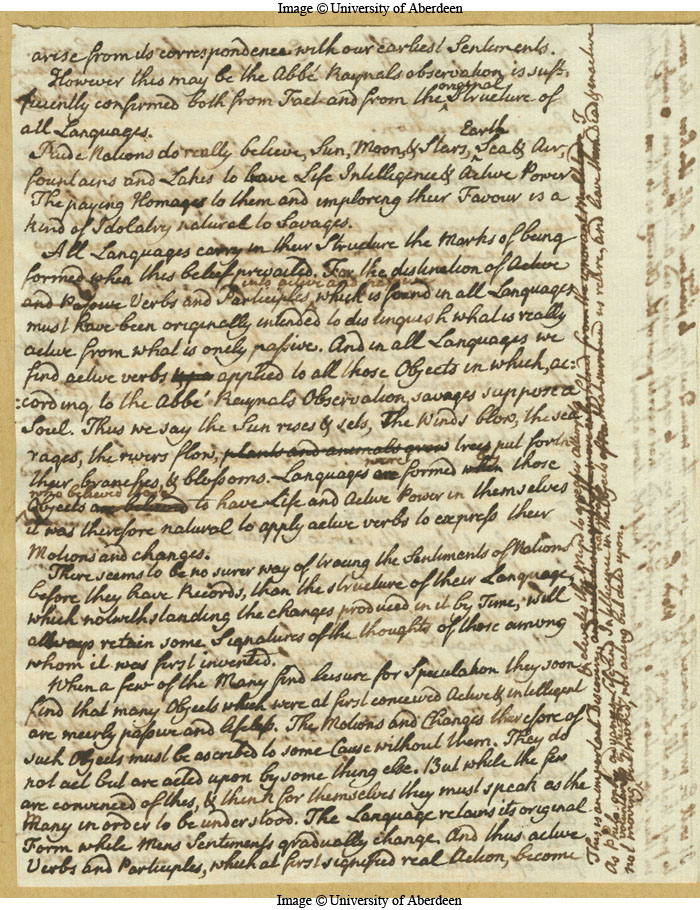 Image © University of Aberdeen
arise from its correspondence with our earliest Sentiments.
However this may be the Abbé Raynals observation is suff:
ficiently confirmed both from Fact and from the original Structure of
all Languages.
Rude Nations do really believe, Sun, Moon, & Stars, Earth Sea & Air,
fountains and Lakes to have Life Intelligence & Active Power
The paying Homages to them and imploring their Favour is a
kind of Idolatry natural to Savages.
All Languages carry in their Structure the Marks of being
formed when this belief prevailed. For the distinction of Active
and Passive Verbs and Participles, into active and passive which is found in all Languages
must have been originally intended to distinguish what is really
active from what is onely passive. And in all Languages we
find active verbs applied to all those Objects in which, ac:
:cording to the Abbé Raynals Observation, savages suppose a
Soul. Thus we say the Sun rises & sets, The Winds blow, the sea
rages, the rivers flow, plants and animals grow trees put forth
their branches, & blossoms. Languages are were formed when those
Objects are believed who believed to have Life and Active Power in themselves
it was therefore natural to apply active verbs to express their
Motions and changes.
There seems to be no surer way of tracing the Sentiments of Nations
before they have Records, than the structure of their Language,
which notwithstanding the changes produced in it by Time, will
allways retain some Signatures of the thoughts of those among
whom it was first invented.
When a few of the Many find leisure for Speculation they soon
find that many Objects which were at first conceived Active & intelligent
are meerly passive and lifeless. The Motions and Changes therefore of
such Objects must be ascribed to some Cause without them. They do
not act but are acted upon by some thing else. But while the few
are convinced of this, & think for themselves they must speak as the
Many in order to be understood. The Language retains its original
Form while Mens Sentiments gradually change. And thus active
Verbs and Participles, which at first signified real Action, become
This is an important Discovery
not moving but moved, not acting but acted upon.
Image © University of Aberdeen